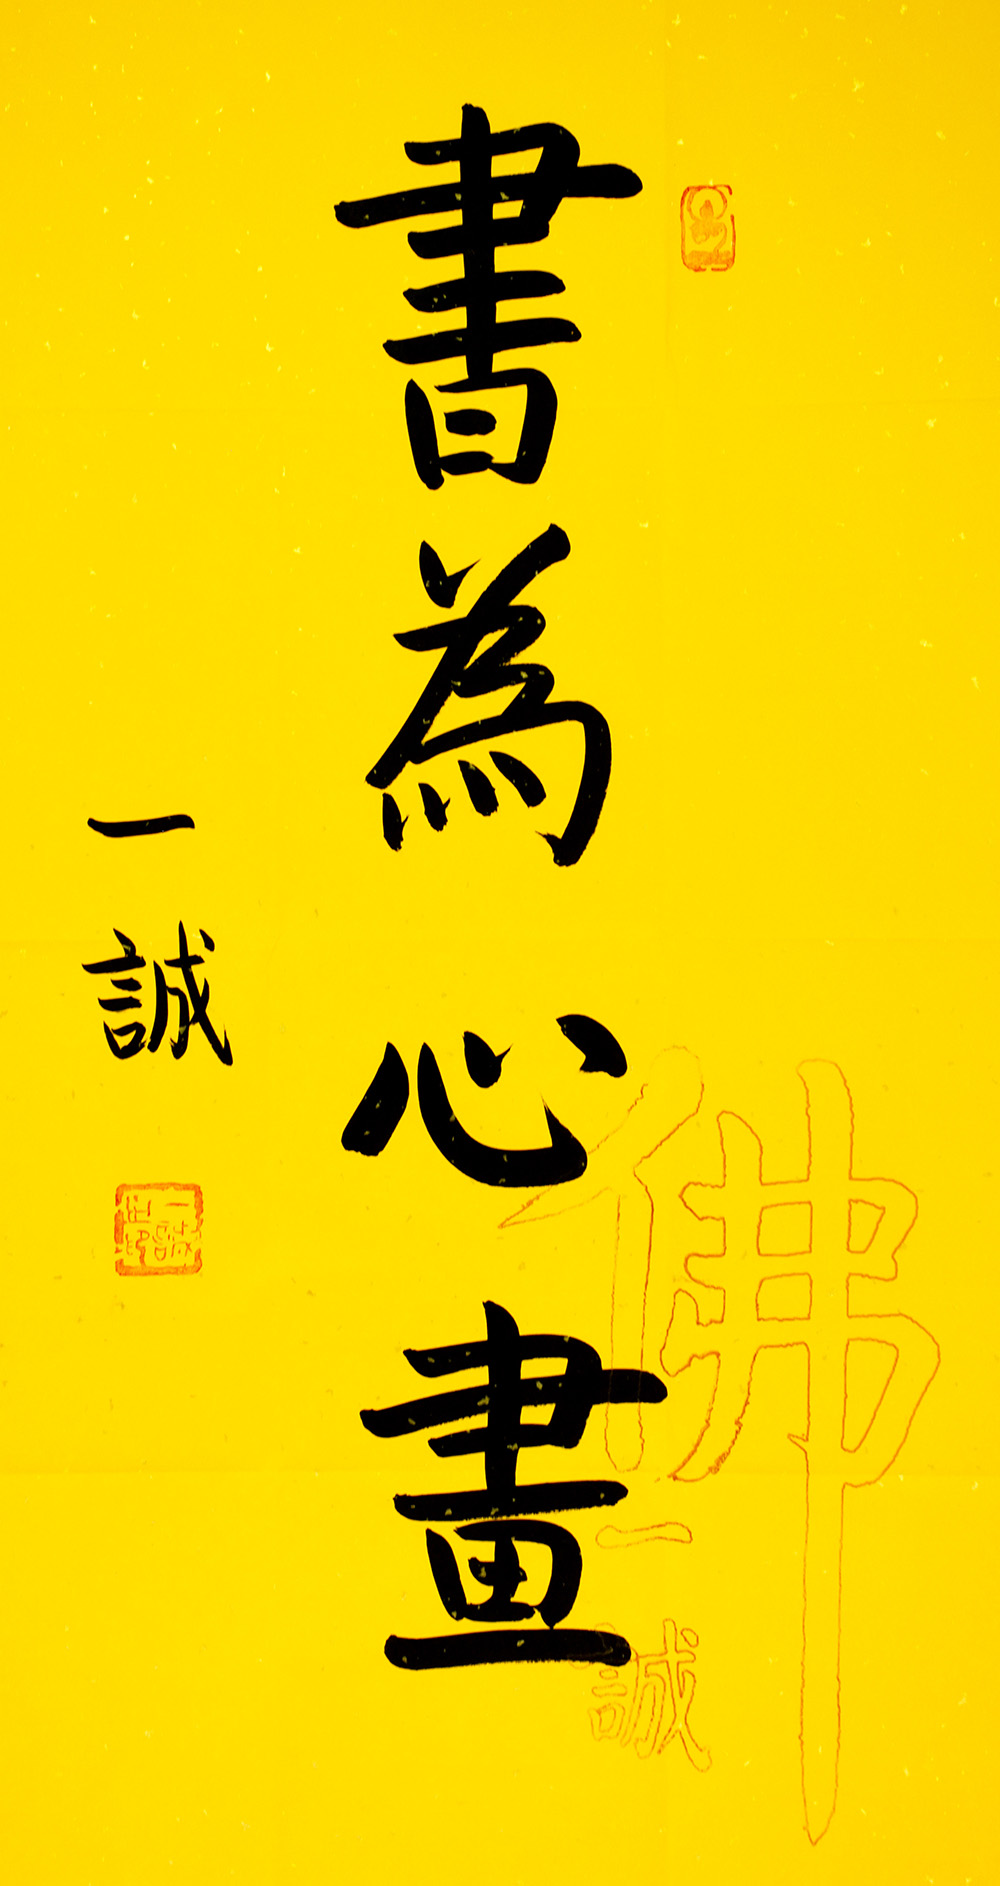 書為心畫
一誠
佛
一誠